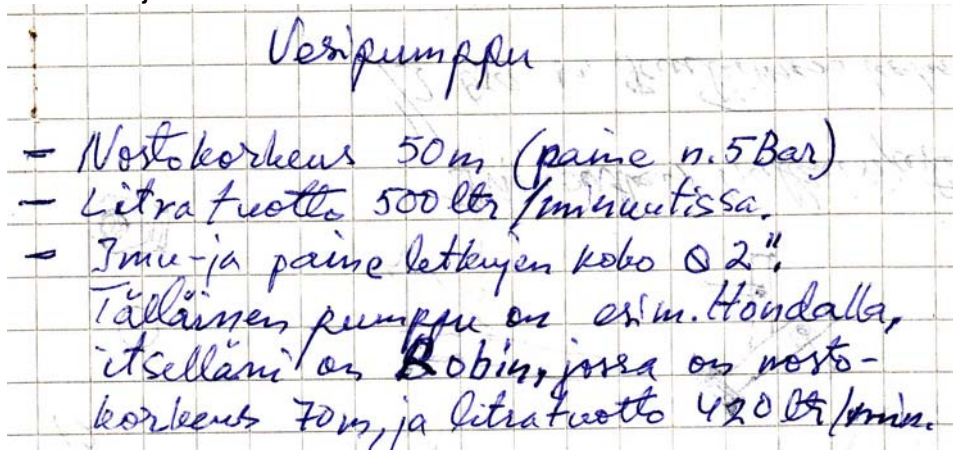 Vesipumppu
- Nostokorkeus 50m (paine n. 5Bar)
- Litratuotto 500 ltr/minuutissa.
- Imu- ja paine letkujen koko Ø 2".
Tälläinen pumppu on esim. Hondalla,
itselläni on Robin, jossa on nosto-
korkeus 70m, ja litratuotto 420 ltr/min.